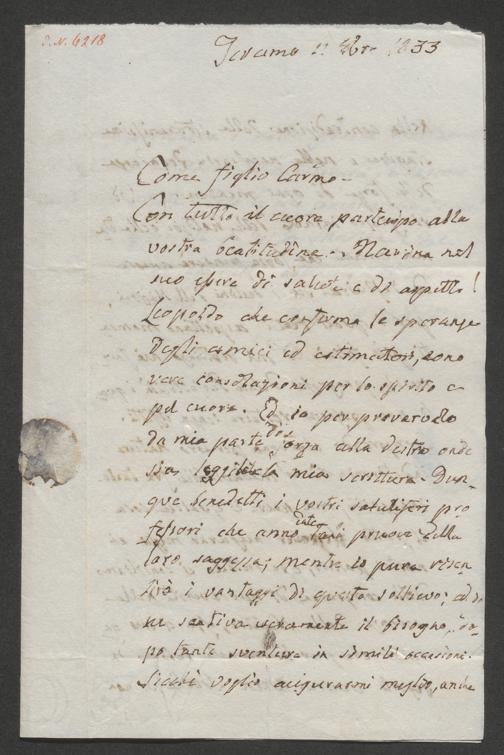 S.N. 6218
Teramo 11 1833
Come figlio Carmo.
Con tutto il cuore partecipo alla
vostra beatitudine. Marina nel
suo essere di salute e di aspetto!
Leopoldo che conferma le speranze
degli amici ed estimatori, sono
vere consolazioni per lo spirito e
pel cuore. Ed io per provarvelo
da mia parte alla destra onde
sia leggibile la mia scrittura. Dun-
que benedetti i vostri salutiferi pro
fessori che anno date tali pruove della
loro saggezza; mentre io pure risen-
tirò i vantaggi di questo sollievo; ed
ne sentiva veramente il bisogno do-
po tante sventure in simili occasioni.
Sicchè voglio augurarmi meglio, anche